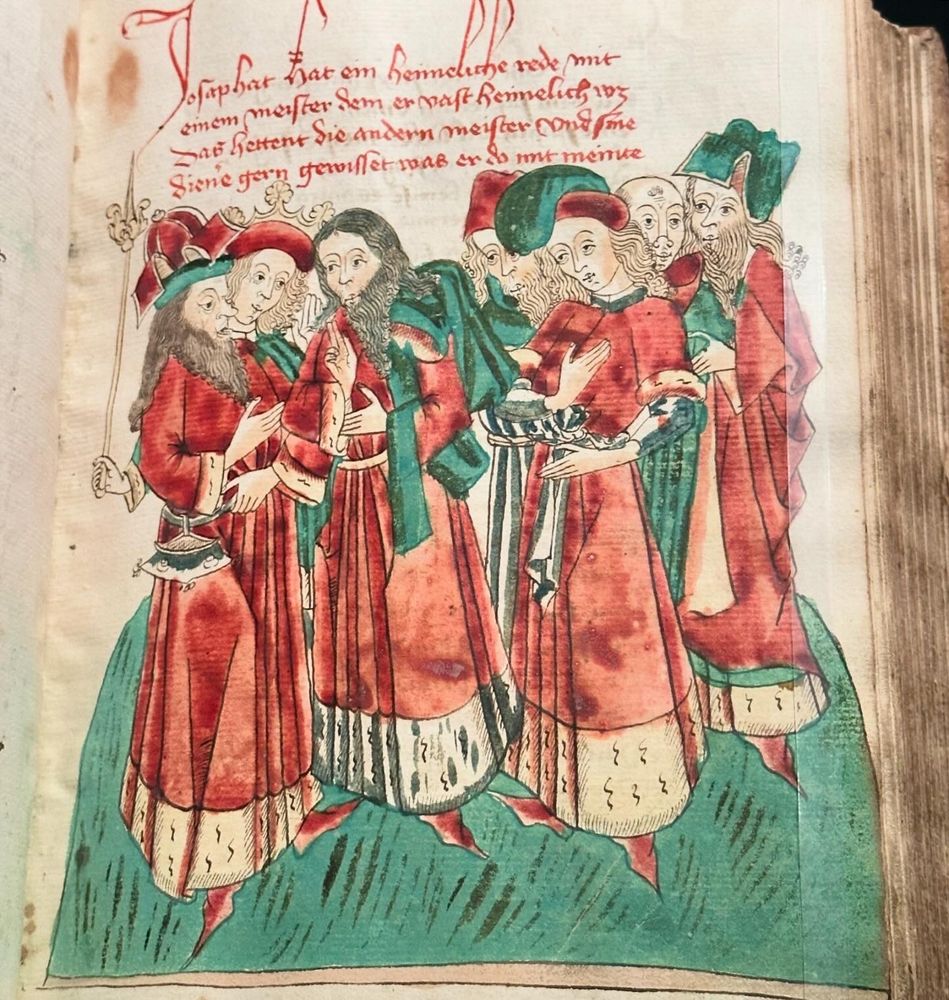 Josaphat hat ein heimeliche rede mit
einem meister dem er vast heimelich wz
Das hettent die andern meister und sine
diener gern gewisset was er do mit meinte